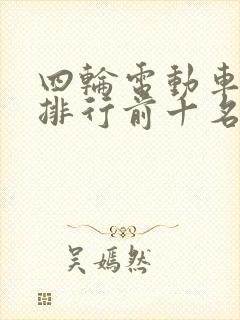 四輪電動車
排行前十名
吳嫣然